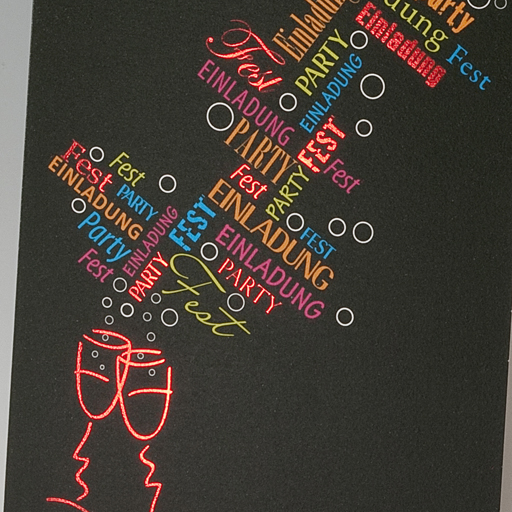 Party
Einladung
Einladung
Fest
Fest
PARTY
EINLADUNG
EINLADUNG
FEST
PARTY
Fest
Fest
PARTY
Fest
Fest
EINLADUNG
PARTY
EINLADUNG
FEST
EINLADUNG
FEST
Party
EINLADUNG
Fest
PARTY
PARTY
Fest